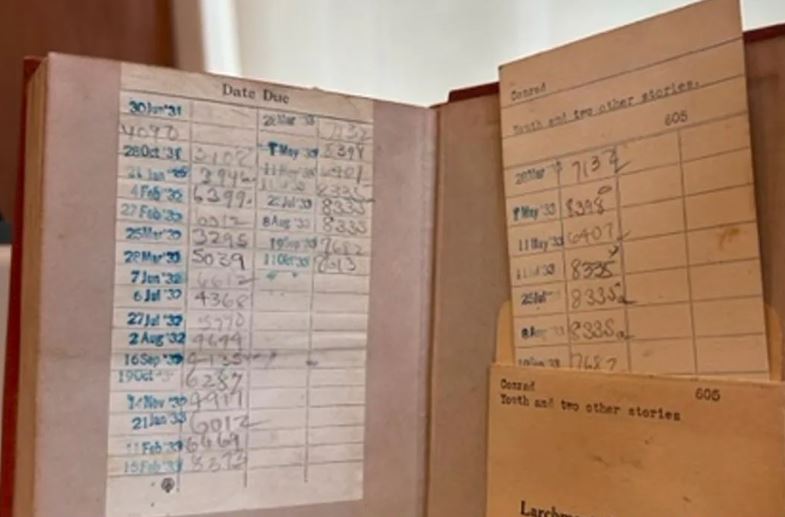 Date Due
30 Jun '31
4090
28 Oct '31 3102
21 Jan 3946
4 Feb '32 6399
27 Feb '32 6012
25 Mar '32 3295
28 Mar '32 5039
7 Jun '32 6612
6 Jul '32 4368
27 Jul '32
2 Aug '32 4694
16 Sep '32 4135
19 Oct 6287
Nov '32 4911
21 Jan '33 6012
11 Feb '33 6669
15 Feb '33 8373
28 Mar '33
May '33 8398
11 May '33
8335
25 Jul '33 8335
8 Aug '33 8335
19 Sep '33 7682
11 Oct '33
Conrad
Youth and two other stories.
605
28 Mar 7132
May '33 8398
11 May '33 6407
8335
25 Jul 8335
8 Aug 8335
7682
Conrad 605
Youth and two other stories